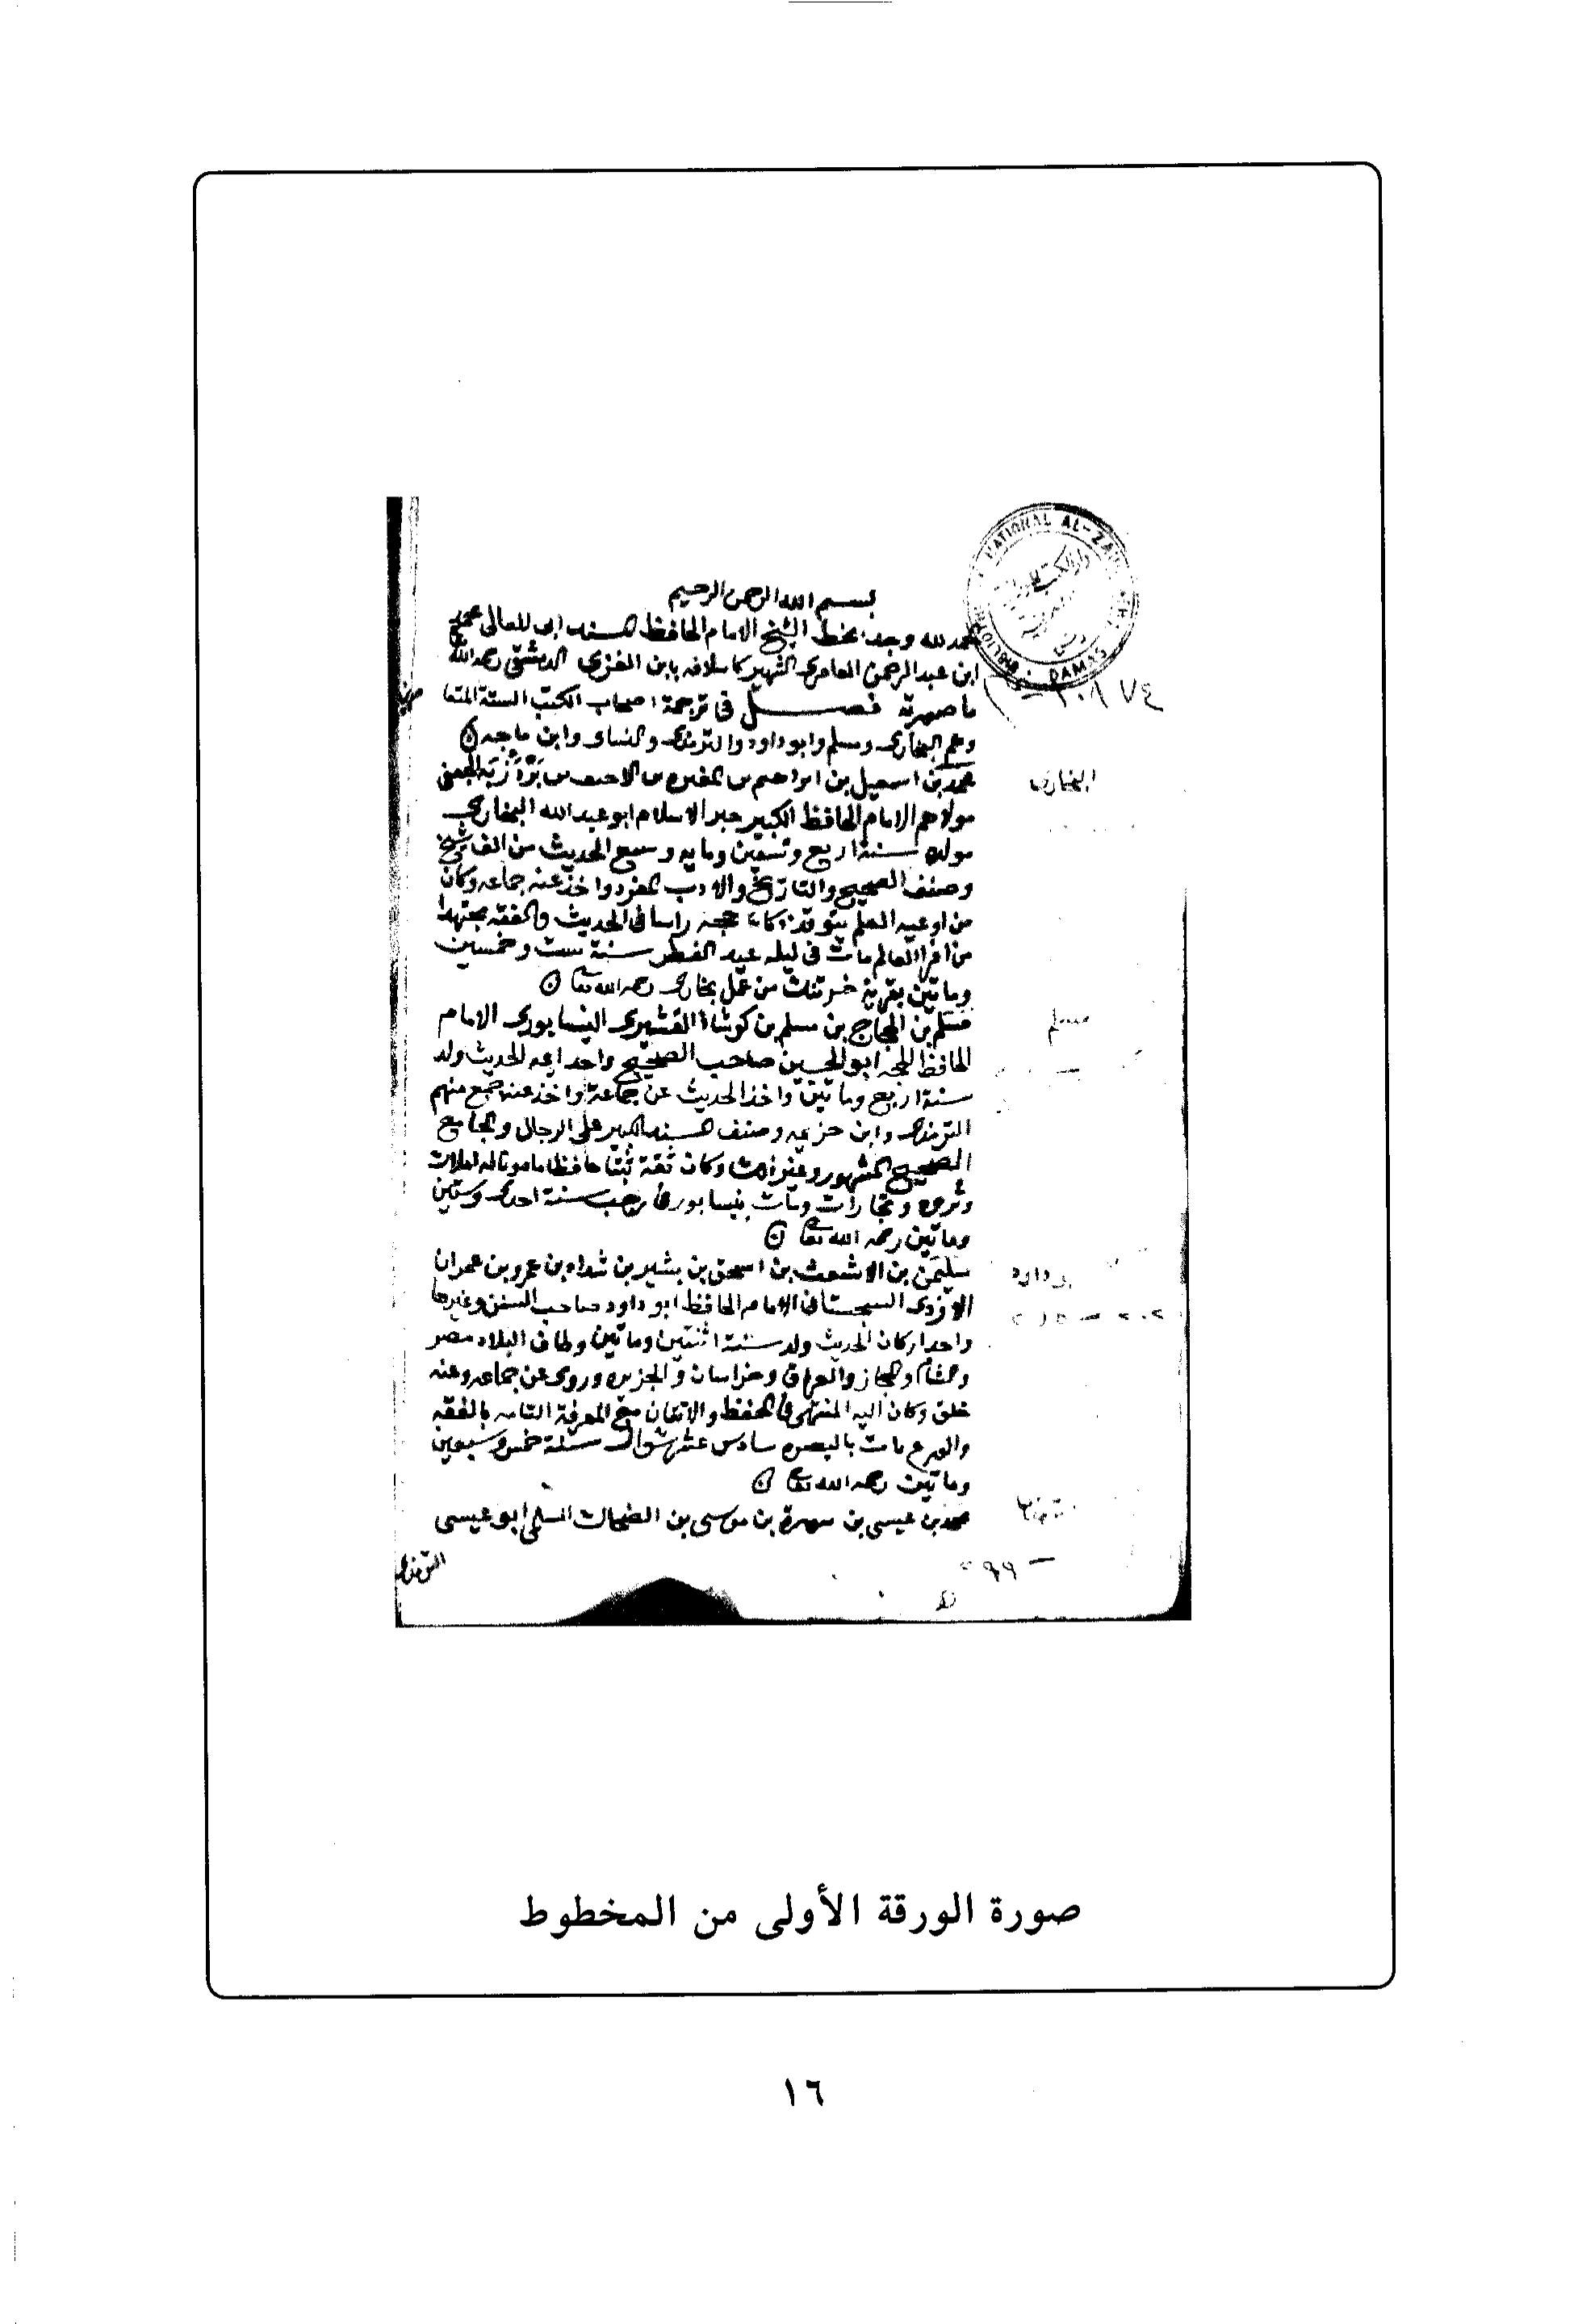 بسم الله الرحمن الرحيم
الحمد لله وجد بخط الشيخ الامام الحافظ المسند ابى المعالى محمد
ابن عبد الرحمن العامرى الشهير كاسلافه بابن الغزى الدمشقى رحمه الله
ما صورته فصل فى ترجمة اصحاب الكتب الستة
وهم البخارى ومسلم وابو داود والترمذى والنساى وابن ماجه
محمد بن اسمعيل بن ابراهيم بن المغيره بن الاحنف بن بَرْدِزْبَه الجعفى
مولاهم الامام الحافظ الكبير حبر الاسلام ابو عبد الله البخارى
مولده سنة اربع وتسعين ومايه وسمع الحديث من الف شيخ
وصنف الصحيح والتاريخ والادب المفرد واخذ عنه جماعه وكان
من اوعيه العلم يتوقد ذكاء حجه راسا فى الحديث والفقه مجتهدا
من افراد العالم مات فى ليله عيد الفطر سنة ست وخمسين
ومائتين بقرية خرتنك من عمل بخارى رحمه الله تعالى
مسلم بن الحجاج بن مسلم بن كوشاذ القشيرى النيسابورى الامام
الحافظ الحجه ابو الحسين صاحب الصحيح واحد ايمه الحديث ولد
سنة اربع ومائتين واخذ الحديث عن جماعة واخذ عنه جمع منهم
الترمذى وابن خزيمه وصنف المسند الكبير على الرجال والجامع
الصحيح المشهور وغير ذلك وكان ثقة ثبتا حافظا مامونا له املاك
وثروه وتجارات ومات بنيسابور فى رجب سنة احدى وستين
ومائتين رحمه الله تعالى
سليمن بن الاشعث بن اسحق بن بشير بن شداد بن عمرو بن عمران
الازدى السجستانى الامام الحافظ ابو داود صاحب السنن وغيرها
واحد اركان الحديث ولد سنة اثنتين ومائتين وطاف البلاد مصر
والشام والحجاز والعراق وخراسان والجزيره وروى عن جماعه وعنه
خلق وكان اليه المنتهى فى الحفظ والاتقان مع المعرفة التامه بالفقه
والورع مات بالبصره سادس عشر شوال سنة خمس وسبعين
ومائتين رحمه الله تعالى
محمد بن عيسى بن سورة بن موسى بن الضحاك السلمى ابو عيسى
الترمذى
البخارى
مسلم
ابو داود
NATIONAL AL-ZAH
DAMAS
صورة الورقة الأولى من المخطوط
١٦